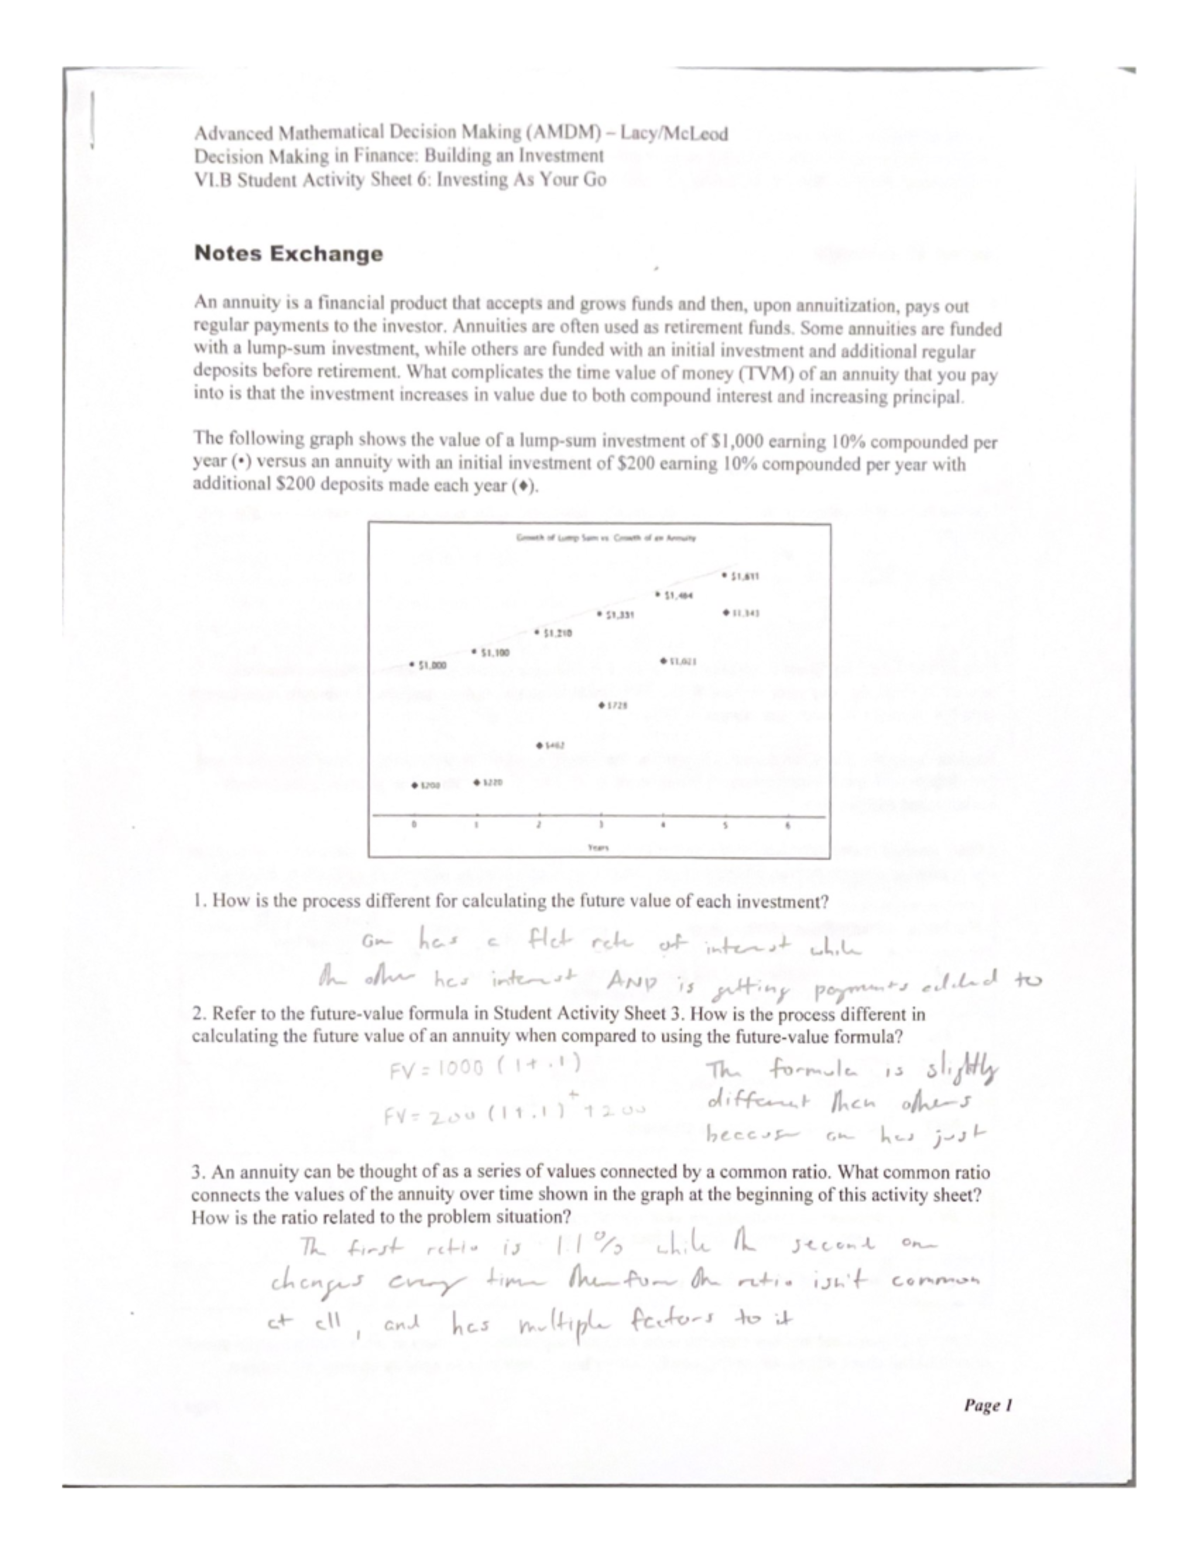 Advanced Mathematical Decision Making (AMDM) – Lacy/McLeod
Decision Making in Finance: Building an Investment
VI.B Student Activity Sheet 6: Investing As Your Go
Notes Exchange
An annuity is a financial product that accepts and grows funds and then, upon annuitization, pays out
regular payments to the investor. Annuities are often used as retirement funds. Some annuities are funded
with a lump-sum investment, while others are funded with an initial investment and additional regular
deposits before retirement. What complicates the time value of money (TVM) of an annuity that you pay
into is that the investment increases in value due to both compound interest and increasing principal.
The following graph shows the value of a lump-sum investment of $1,000 earning 10% compounded per
year (•) versus an annuity with an initial investment of $200 earning 10% compounded per year with
additional $200 deposits made each year (◆).
Growth of Lump Sum vs Growth of an Annuity
• $1,611
• $1,464
• $1,331
◆ $1,343
• $1,210
• $1,100
• $1,000
◆ $1,021
◆ $728
◆ $462
◆ $200
◆ $220
0 1 2 3 4 5 6
Years
1. How is the process different for calculating the future value of each investment?
On has a flat rate of interest while
the other has interest AND is getting payments added to
2. Refer to the future-value formula in Student Activity Sheet 3. How is the process different in
calculating the future value of an annuity when compared to using the future-value formula?
FV = 1000 (1+.1)
FV = 200 (1+.1)^t +200
The formula is slightly
different then others
because on has just
3. An annuity can be thought of as a series of values connected by a common ratio. What common ratio
connects the values of the annuity over time shown in the graph at the beginning of this activity sheet?
How is the ratio related to the problem situation?
The first ratio is 11% while the second on
changes every time therefore the ratio isn't common
at all, and has multiple factors to it
Page 1